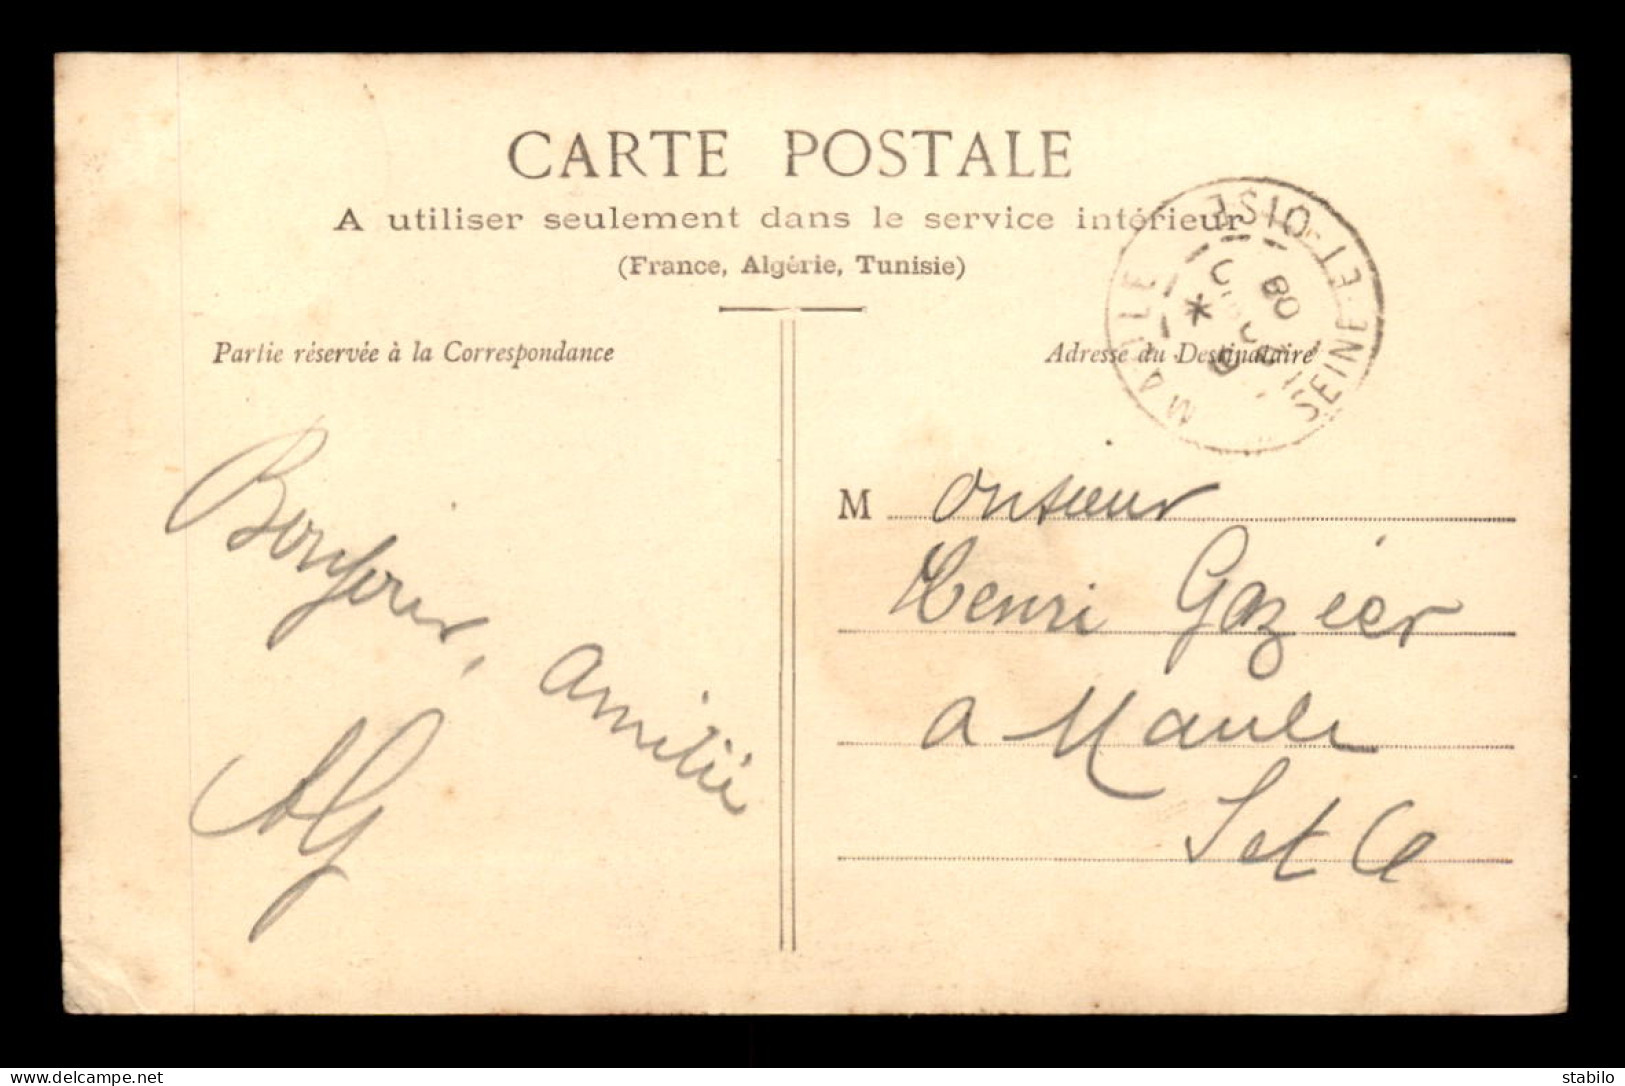 CARTE POSTALE
A utiliser seulement dans le service intérieur
(France, Algérie, Tunisie)
Partie réservée à la Correspondance
Bonjour, amitié
AG
Adresse du Destinataire
MAULE SEINE-ET-OISE
08
Monsieur
Henri Gozier
a Maule
S et O
stabilo